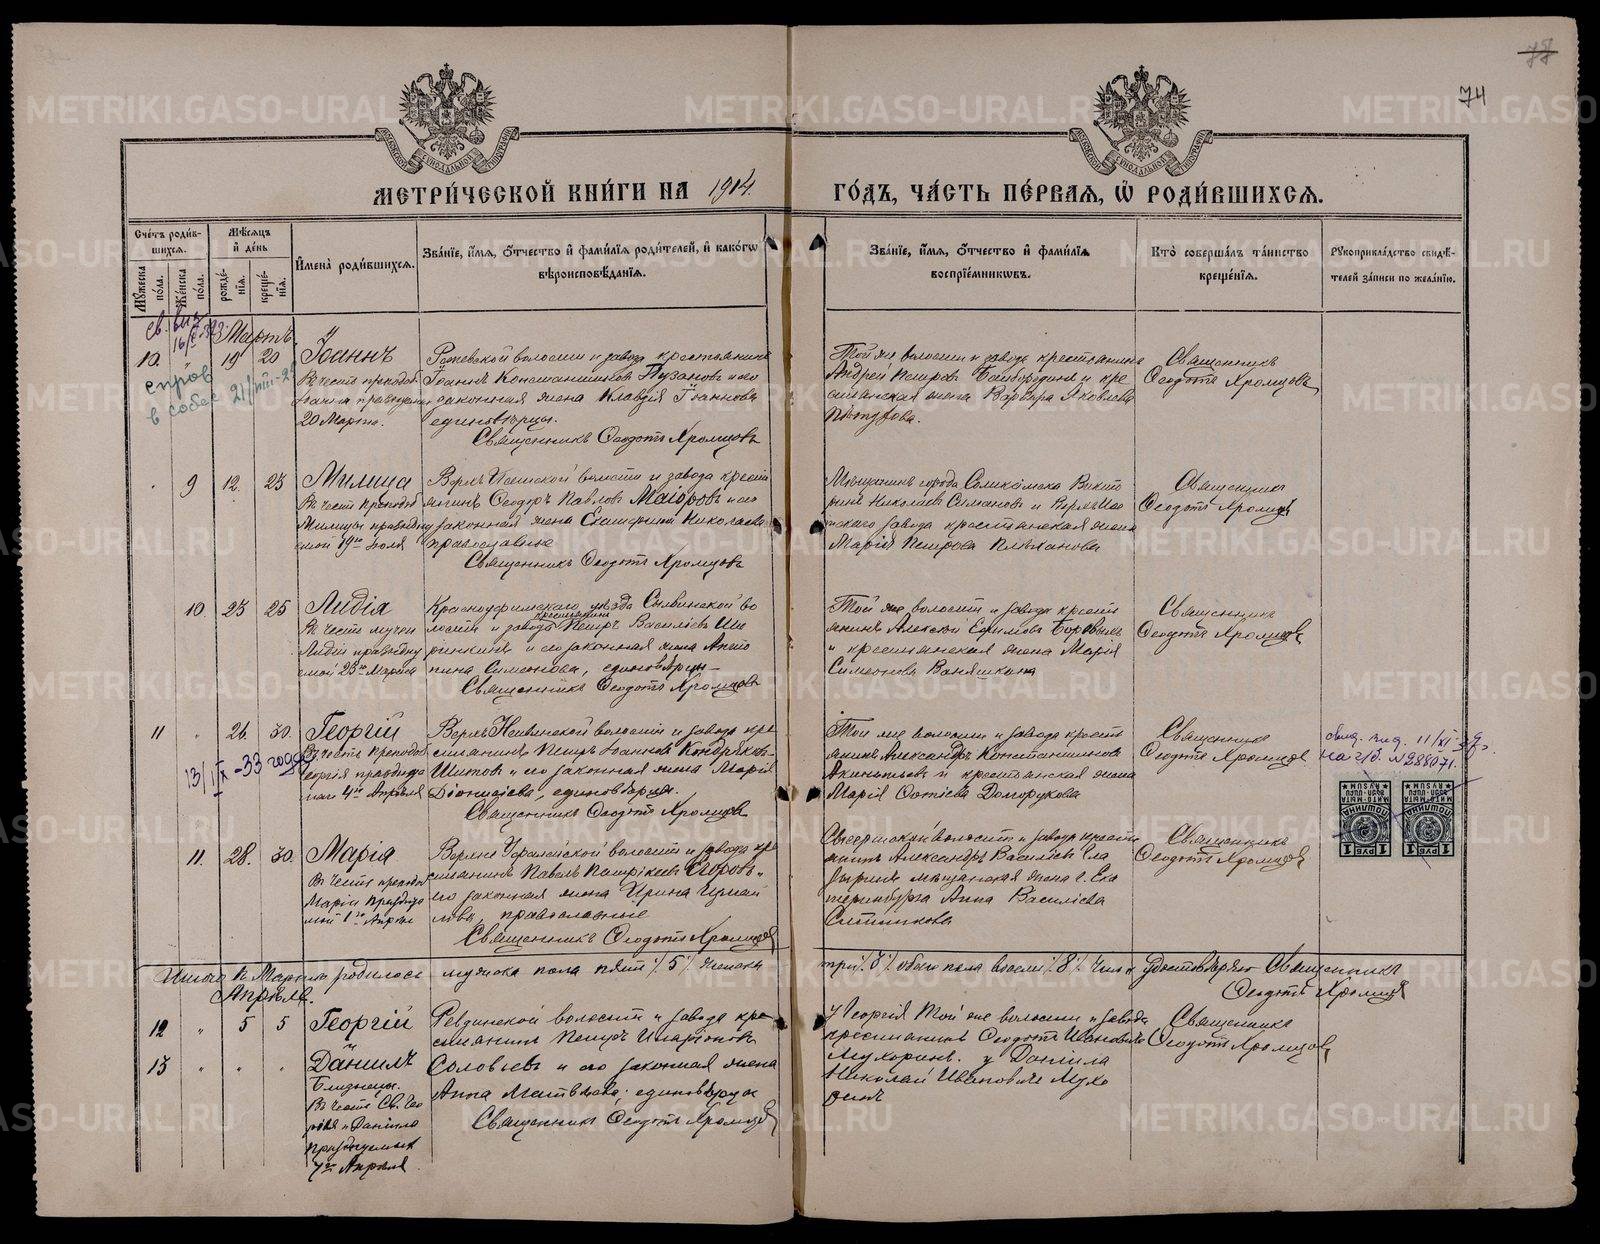 78
74
МЕТРИ́ЧЕСКОЙ КНИ́ГИ НА 1914. ГО́ДЪ, ЧА́СТЬ ПЕ́РВАЯ, Ѿ РОДИ́ВШИХСЯ.
Сче́тъ роди́вшихся.
Му́жеска по́ла.
Же́нска по́ла.
Мѣ́сяцъ и де́нь
рожде́нїя.
креще́нїя.
И҆мена̀ роди́вшихся.
Зва́нїе, и҆́мя, ѻ҆́тчество и҆ фами́лїя роди́телей, и҆ како́гѡ вѣроисповѣ́данїя.
Зва́нїе, и҆́мя, ѻ҆́тчество и҆ фами́лїя воспрїе́мниковъ.
Кто̀ соверша́лъ та́инство креще́нїя.
Рукоприкла́дство свидѣ́телей за́писи по жела́нїю.
Мартъ.
10. " 19 20 Іоаннъ
Въ честь преподоб.
Іоанна празднуем.
20 Марта.
волости и завода крестьянинъ
Іоаннъ Константиновъ Пузановъ и его
законная жена Клавдія Іоаннова
единовѣрцы.
Священникъ Ѳеодотъ Хромцовъ
Той же волости и завода крестьянинъ
Андрей Петровъ Байбородинъ и кре
стьянская жена Варвара Яковлева
Пѣтухова.
Священникъ
Ѳеодотъ Хромцовъ
справ
в собес
9 12 23 Милица
Въ честь преподоб
Милицы праздну
емой 19го Іюля
волости и завода крестья
янинъ Ѳеодоръ Павловъ Маіоровъ и его
законная жена Екатерина Николаева
православные
Священникъ Ѳеодотъ Хромцовъ
Мѣщанинъ города
Николаевъ Симановъ и
завода крестьянская жена
Марія Петрова Плѣханова
Священникъ
Ѳеодотъ Хромцовъ
10 23 25 Лидія
Въ честь мучен
Лидіи праздну
емой 23го Марта
Красноуфимскаго уѣзда Сылвинской во
лости и завода крестьянинъ Петръ Василіевъ Ши
ринкинъ и его законная жена Анто
нина Симеонова, единовѣрцы
Священникъ Ѳеодотъ Хромцовъ
Той же волости и завода кресть
янинъ Алексѣй Ефимовъ Боровыхъ
и крестьянская жена Марія
Симеонова Ваняшкина
Священникъ
Ѳеодотъ Хромцовъ
11 " 26 30. Георгій
Въ честь преподоб
Георгія праздну
4го Апрѣля
13/IX-33 года
Верхъ Нейвинской волости и завода кре
стьянинъ Петръ Іоанновъ Кондряков-
Шитовъ и его законная жена Марія
Діонисіева, единовѣрцы.
Священникъ Ѳеодотъ Хромцовъ
Той же волости и завода кресть
янинъ Александръ Константиновъ
Акинтьевъ и крестьянская жена
Марія Фотіева Доморукова
Священникъ
Ѳеодотъ Хромцовъ
№ 288071.
1 РУБ 1
1 РУБ 1
11. 28. 30. Марія
Въ честь преподоб
Маріи праздну
емой 1го Апрѣля
Верхне Уфалейской волости и завода кре
стьянинъ Павелъ Патрикіевъ Егоровъ и
его законная жена Ирина Измаи
лова, православные
Священникъ Ѳеодотъ Хромцовъ
Сысертской волости и завода кресть
янинъ Александръ Василіевъ Гла
зыринъ мѣщанская жена г. Ека
теринбурга Анна Василіева
Ситникова
Священникъ
Ѳеодотъ Хромцовъ
Итого въ Мартѣ родилось мужска пола пять /5/, женска три /3/ обоего пола восемь /8/. удостовѣряю Священникъ
Ѳеодотъ Хромцовъ
Апрѣль.
12 " 5 5 Георгій
13 " " " Даніилъ
Близнецы.
Въ честь Св. Геор
гія и Даніила
празднуемыхъ
Апрѣля
Ревдинской волости и завода кре
стьянинъ Петръ Иларіоновъ
Соловьевъ и его законная жена
Анна Матвѣева, единовѣрцы
Священникъ Ѳеодотъ Хромцовъ
У Георгія Той же волости и завода
крестьянинъ Ѳеодотъ Ивановичъ
Мухоринъ. у Даніила
Николай Ивановичъ Мухо
ринъ
Священникъ
Ѳеодотъ Хромцовъ
METRIKI.GASO-URAL.RU